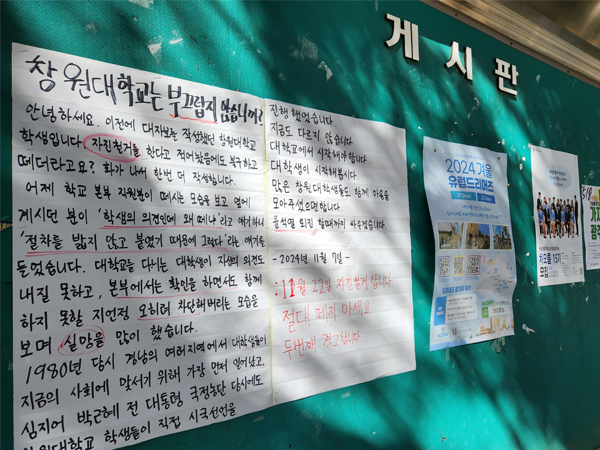 게시판
창원대학교는 부끄럽지 않습니까?
안녕하세요. 이전에 대자보를 작성했던 창원대학교
학생입니다. 자진철거를 한다고 적어놨음에도 불구하고
떼더라고요? 화가 나서 한번 더 작성합니다.
어제 학교 본부 직원분이 떼시는 모습을 보고 옆에
계시던 분이 '학생의 의견인데 왜 떼냐'라고 얘기하니
'절차를 밟지 않고 붙였기 때문에 그렇다'라는 얘기를
들었습니다. 대학교를 다니는 대학생이 자신의 의견도
내질 못하고, 본부에서는 확인을 하면서도 함께
하지 못할 지언정 오히려 차단해버리는 모습을
보며 실망을 많이 했습니다.
1980년 당시 경남의 여러지역에서 대학생들이
지금의 사회에 맞서기 위해 가장 먼저 일어났고,
심지어 박근혜 전 대통령 국정농단 당시에도
창원대학교 학생들이 직접 시국선언을
진행했었습니다.
지금도 다르지 않습니다.
대학교에서 시작해야 합니다.
대학생이 시작해봅시다.
많은 창원대학생들도 함께 마음을
모아주셨으면 합니다.
윤석열 퇴진 할때까지 싸우겠습니다.
- 2024년 11월 7일 -
: 11월 22일 자진철거 합니다
절대 떼지 마세요
두번째 경고합니다
2024 겨울
유럽드리머즈